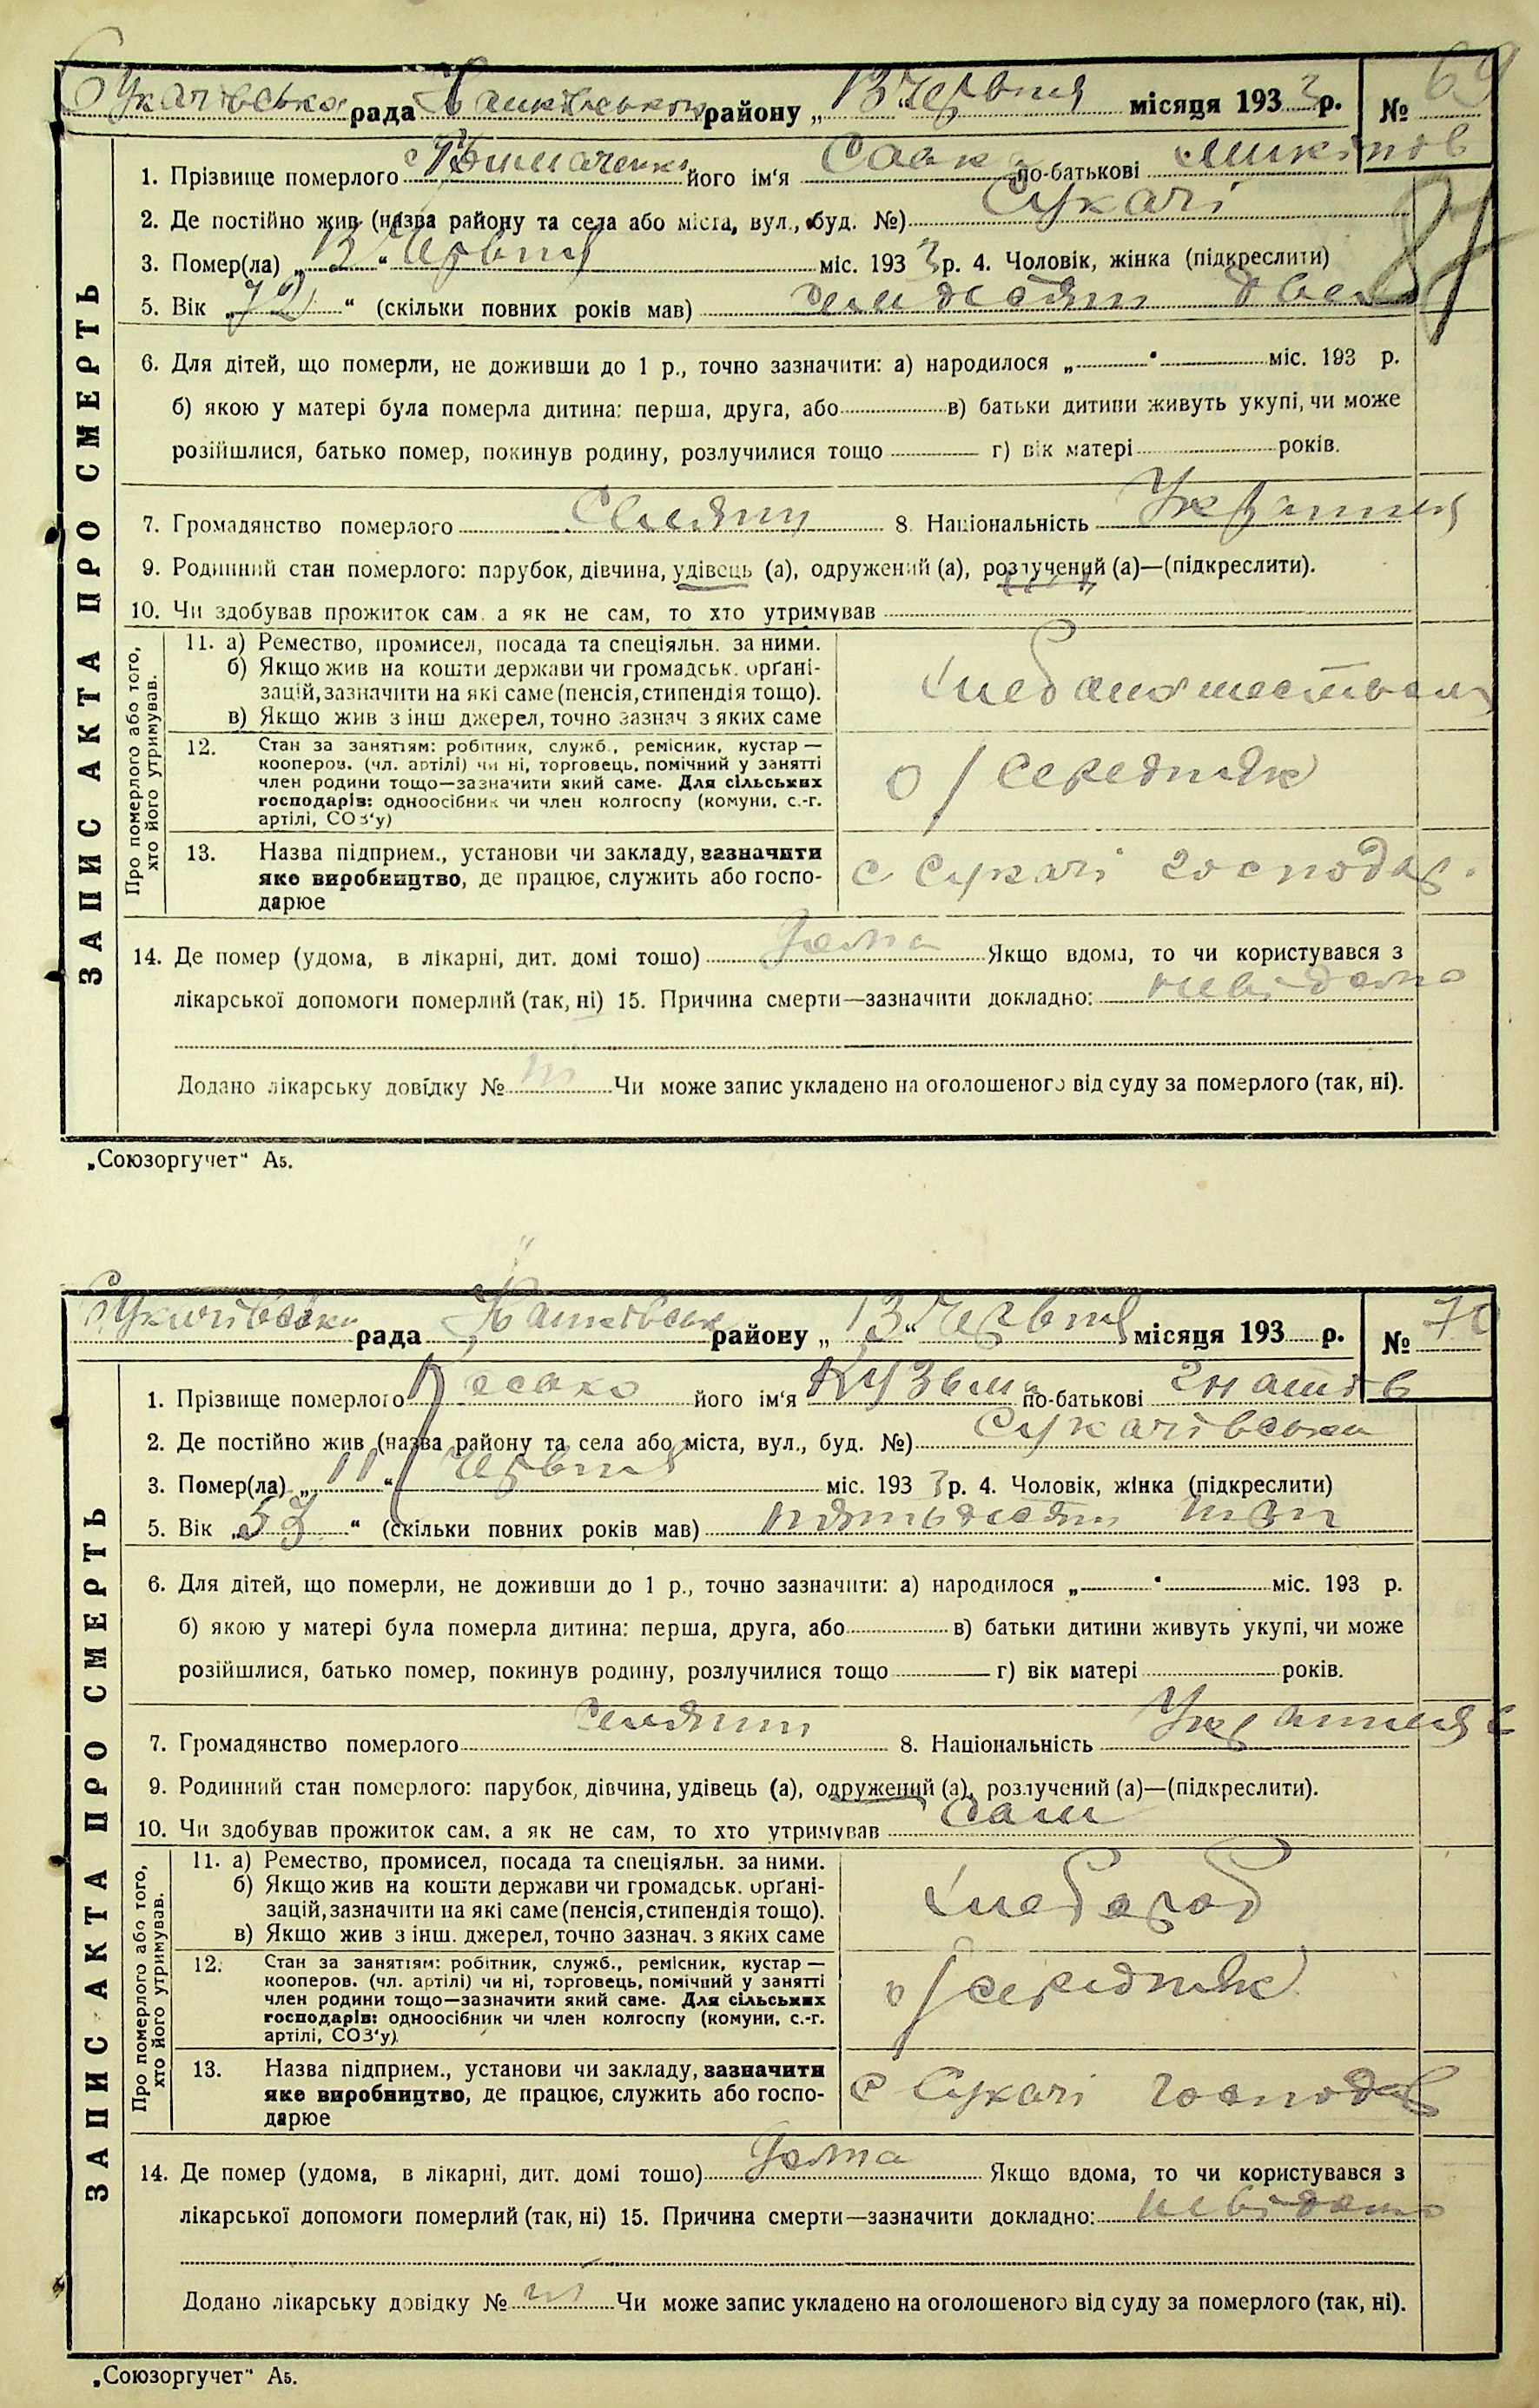 Сукачівська рада Іванківського району „ 13 “ Червня місяця 193 3 р. № 69
ЗАПИС АКТА ПРО СМЕРТЬ
1. Прізвище померлого його ім'я Сава по-батькові Микитов
2. Де постійно жив (назва району та села або міста, вул., буд. №) Сукачі
3. Помер(ла) „ 13 “ Червня міс. 193 3 р. 4. Чоловік, жінка (підкреслити)
5. Вік „ 72 “ (скільки повних років мав) семдесят два
6. Для дітей, що померли, не доживши до 1 р., точно зазначити: а) народилося „ “ міс. 193 р.
б) якою у матері була померла дитина: перша, друга, або в) батьки дитини живуть укупі, чи може
розійшлися, батько помер, покинув родину, розлучилися тощо г) вік матері років.
7. Громадянство померлого Селянин 8. Національність Українец
9. Родинний стан померлого: парубок, дівчина, удівець (а), одружений (а), розлучений (а)—(підкреслити).
10. Чи здобував прожиток сам, а як не сам, то хто утримував
Про померлого або того, хто його утримував.
11. а) Ремество, промисел, посада та спеціяльн. за ними.
б) Якщо жив на кошти держави чи громадськ. орґані-
зацій, зазначити на які саме (пенсія, стипендія тощо).
в) Якщо жив з інш джерел, точно зазнач з яких саме
12. Стан за заняттям: робітник, служб., ремісник, кустар —
кооперов. (чл. артілі) чи ні, торговець, помічний у занятті
член родини тощо—зазначити який саме. Для сільських
господарів: одноосібник чи член колгоспу (комуни, с.-г.
артілі, СОЗ'у)
о/середняк
13. Назва підприєм., установи чи закладу, зазначити
яке виробництво, де працює, служить або госпо-
дарює
с Сукачі господар.
14. Де помер (удома, в лікарні, дит. домі тощо) Дома Якщо вдома, то чи користувався з
лікарської допомоги померлий (так, ні) 15. Причина смерти—зазначити докладно: невідомо
Додано лікарську довідку № ні Чи може запис укладено на оголошеного від суду за померлого (так, ні).
„Союзоргучет“ А5.
Сукачівська рада Іванківськ району „ 13 “ Червня місяця 193 р. № 70
ЗАПИС АКТА ПРО СМЕРТЬ
1. Прізвище померлого його ім'я Кузьма по-батькові Гнатів
2. Де постійно жив (назва району та села або міста, вул., буд. №) Сукачівська
3. Помер(ла) „ 11 “ Червня міс. 193 3 р. 4. Чоловік, жінка (підкреслити)
5. Вік „ 53 “ (скільки повних років мав) пятьдесят три
6. Для дітей, що померли, не доживши до 1 р., точно зазначити: а) народилося „ “ міс. 193 р.
б) якою у матері була померла дитина: перша, друга, або в) батьки дитини живуть укупі, чи може
розійшлися, батько помер, покинув родину, розлучилися тощо г) вік матері років.
7. Громадянство померлого Селянин 8. Національність Українец
9. Родинний стан померлого: парубок, дівчина, удівець (а), одружений (а), розлучений (а)—(підкреслити).
10. Чи здобував прожиток сам, а як не сам, то хто утримував Сам
Про померлого або того, хто його утримував.
11. а) Ремество, промисел, посада та спеціяльн. за ними.
б) Якщо жив на кошти держави чи громадськ. орґані-
зацій, зазначити на які саме (пенсія, стипендія тощо).
в) Якщо жив з інш. джерел, точно зазнач. з яких саме
хлебороб
12. Стан за заняттям: робітник, служб., ремісник, кустар —
кооперов. (чл. артілі) чи ні, торговець, помічний у занятті
член родини тощо—зазначити який саме. Для сільських
господарів: одноосібник чи член колгоспу (комуни, с.-г.
артілі, СОЗ'у)
о/середняк
13. Назва підприєм., установи чи закладу, зазначити
яке виробництво, де працює, служить або госпо-
дарює
с Сукачі господар
14. Де помер (удома, в лікарні, дит. домі тощо) Дома Якщо вдома, то чи користувався з
лікарської допомоги померлий (так, ні) 15. Причина смерти—зазначити докладно: невідомо
Додано лікарську довідку № ні Чи може запис укладено на оголошеного від суду за померлого (так, ні).
„Союзоргучет“ А5.